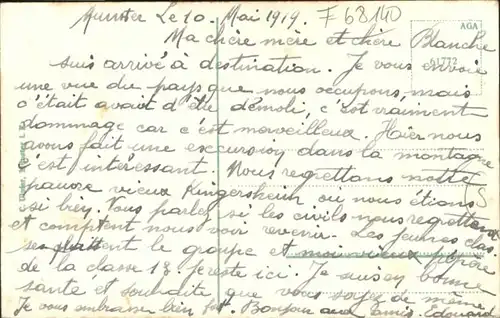 Munster Le 10. Mai 1919. F 68140
AGA
Ma chère mère et chère Blanche
91772
suis arrivé à destination. Je vous envoie
une vue du pays que nous occupons, mais
c'était avant d'être démoli, c'est vraiment
dommage car c'est merveilleux. Hier nous
avons fait une excursion dans la montagne
c'est intéressant. Nous regrettons notre
pauvre vieux Kingersheim où nous étions
si bien. Vous parlez si les civils nous regrettent
et comptent nous voir revenir. Les jeunes clas.
ses quittent le groupe et moi vieux
de la classe 18. je reste ici. Je suis en bonne
santé et souhaite que vous soyez de même.
Je vous embrasse bien fort. Bonjour aux amis. Edouard